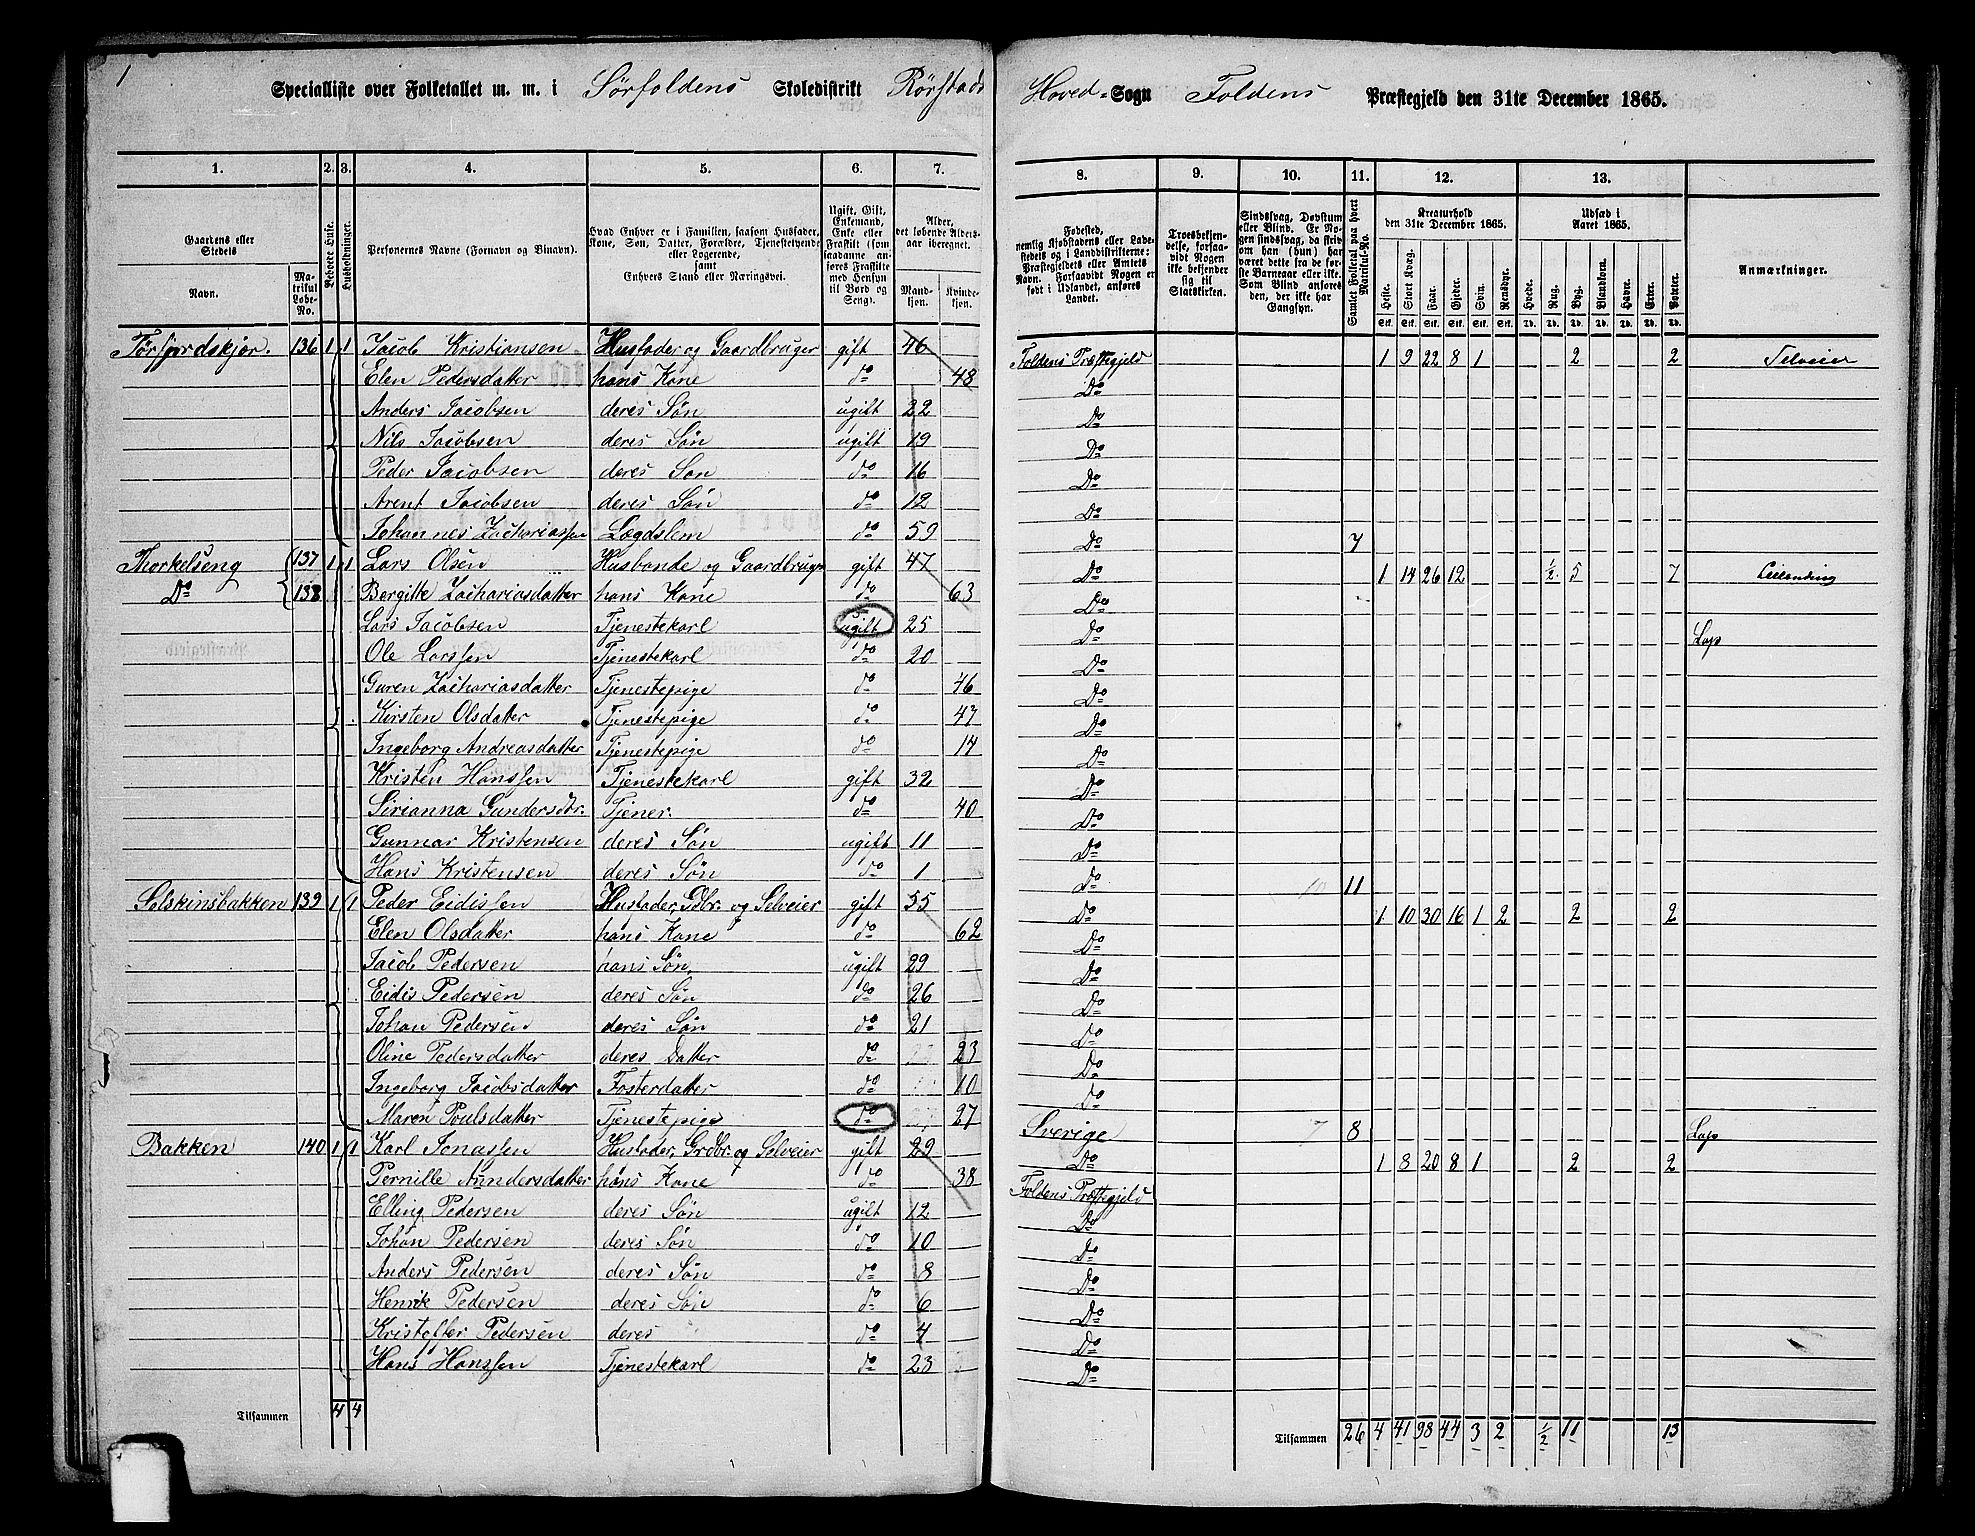 1
Specialliste over Folketallet m. m. i Sørfoldens Skoledistrikt Rørstads Hoved-Sogn Foldens Præstegjeld den 31te December 1865.
1. 2. 3. 4. 5. 6. 7. 8. 9. 10. 11. 12. 13.
Gaardens eller Stedets Navn. Matrikul Løbe-No. Beboede Huse. Husholdninger. Personernes Navne (Fornavn og Binavn). Hvad Enhver er i Familien, saasom Husfader, Kone, Søn, Datter, Forældre, Tjenestetyende eller Logerende, samt Enhvers Stand eller Næringsvei. Ugift, Gift, Enkemand, Enke eller Fraskilt (som saadanne anføres Fraskilte med Hensyn til Bord og Seng). Alder, det løbende Aldersaar iberegnet. Mandkjøn. Kvindekjøn. Fødested, nemlig Kjøbstadens eller Ladestedets og i Landdistrikterne: Præstegjeldets eller Amtets Navn. Forsaavidt Nogen er født i Udlandet, anføres Landet. Troesbekjendelse, forsaavidt Nogen ikke bekjender sig til Statskirken. Sindssvag, Døvstum eller Blind. Er Nogen sindssvag, da skrives om han (hun) har været dette fra de første Barneaar eller ikke. Som Blind anføres den, der ikke har Gangsyn. Samlet Folketal paa hvert Matrikul-No. Kreaturhold den 31te December 1865. Heste. Stort Kvæg. Faar. Gjeder. Svin. Rensdyr. Udsæd i Aaret 1865. Hvede. Rug. Byg. Blandkorn. Havre. Erter. Poteter. Anmærkninger.
Tørfjordskjør. 136 1 1 Jacob Kristiansen Husfader og Gaardbruger gift 46 Foldens Præstegjeld 1 9 22 8 1 2 2 Selveier
Elen Pedersdatter hans Kone do 48 Do
Anders Jacobsen deres Søn ugift 22 Do
Nils Jacobsen deres Søn ugift 19 Do
Peder Jacobsen deres Søn do 16 Do
Arent Jacobsen deres Søn do 12 Do
Johannes Zachariassen Lægdslem do 59 Do 7
Thorkelseng 137 1 1 Lars Olsen Husbonde og Gaardbruger gift 47 Do 1 14 26 12 1/2 5 7 Leilending
Do 138 Bergitte Zachariasdatter hans Kone do 63 Do
Lars Jacobsen Tjenestekarl ugift 25 Do Lap
Ole Larssen Tjenestekarl do 20 Do
Guren Zachariasdatter Tjenestepige do 46 Do
Kirsten Olsdatter Tjenestepige do 47 Do
Ingeborg Andreasdatter Tjenestepige do 14 Do
Kristen Hanssen Tjenestekarl gift 32 Do
Sirianna Gundersdtr. Tjener. do 40 Do
Gunnar Kristensen deres Søn ugift 11 Do
Hans Kristensen deres Søn do 1 Do 10 11
Solskinsbakken 139 1 1 Peder Eidissen Husfader, Gdbr. og Selveier gift 55 Do 1 10 30 16 1 2 2 2
Elen Olsdatter hans Kone do 62 Do
Jacob Pedersen hans Søn, ugift 29 Do
Eidis Pedersen deres Søn do 26 Do
Johan Pedersen deres Søn do 21 Do
Oline Pedersdatter deres Datter do 23 Do
Ingeborg Jacobsdatter Fosterdatter do 10 Do
Maren Poulsdatter Tjenestepige do 27 Sverige 7 8 Lap
Bakken 140 1 1 Karl Jonassen Husfader, Grdbr. og Selveier gift 29 Do 1 8 20 8 1 2 2
Pernille Anndersdatter hans Kone do 38 Foldens Præstegjeld
Elling Pedersen deres Søn ugift 12 Do
Johan Pedersen deres Søn do 10 Do
Anders Pedersen deres Søn do 8 Do
Henrik Pedersen deres Søn do 6 Do
Kristoffer Pedersen deres do 4 Do
Hans Hanssen Tjenestekarl do 23 Do
Tilsammen 4 4 Tilsammen 26 4 41 98 44 3 2 1/2 11 13